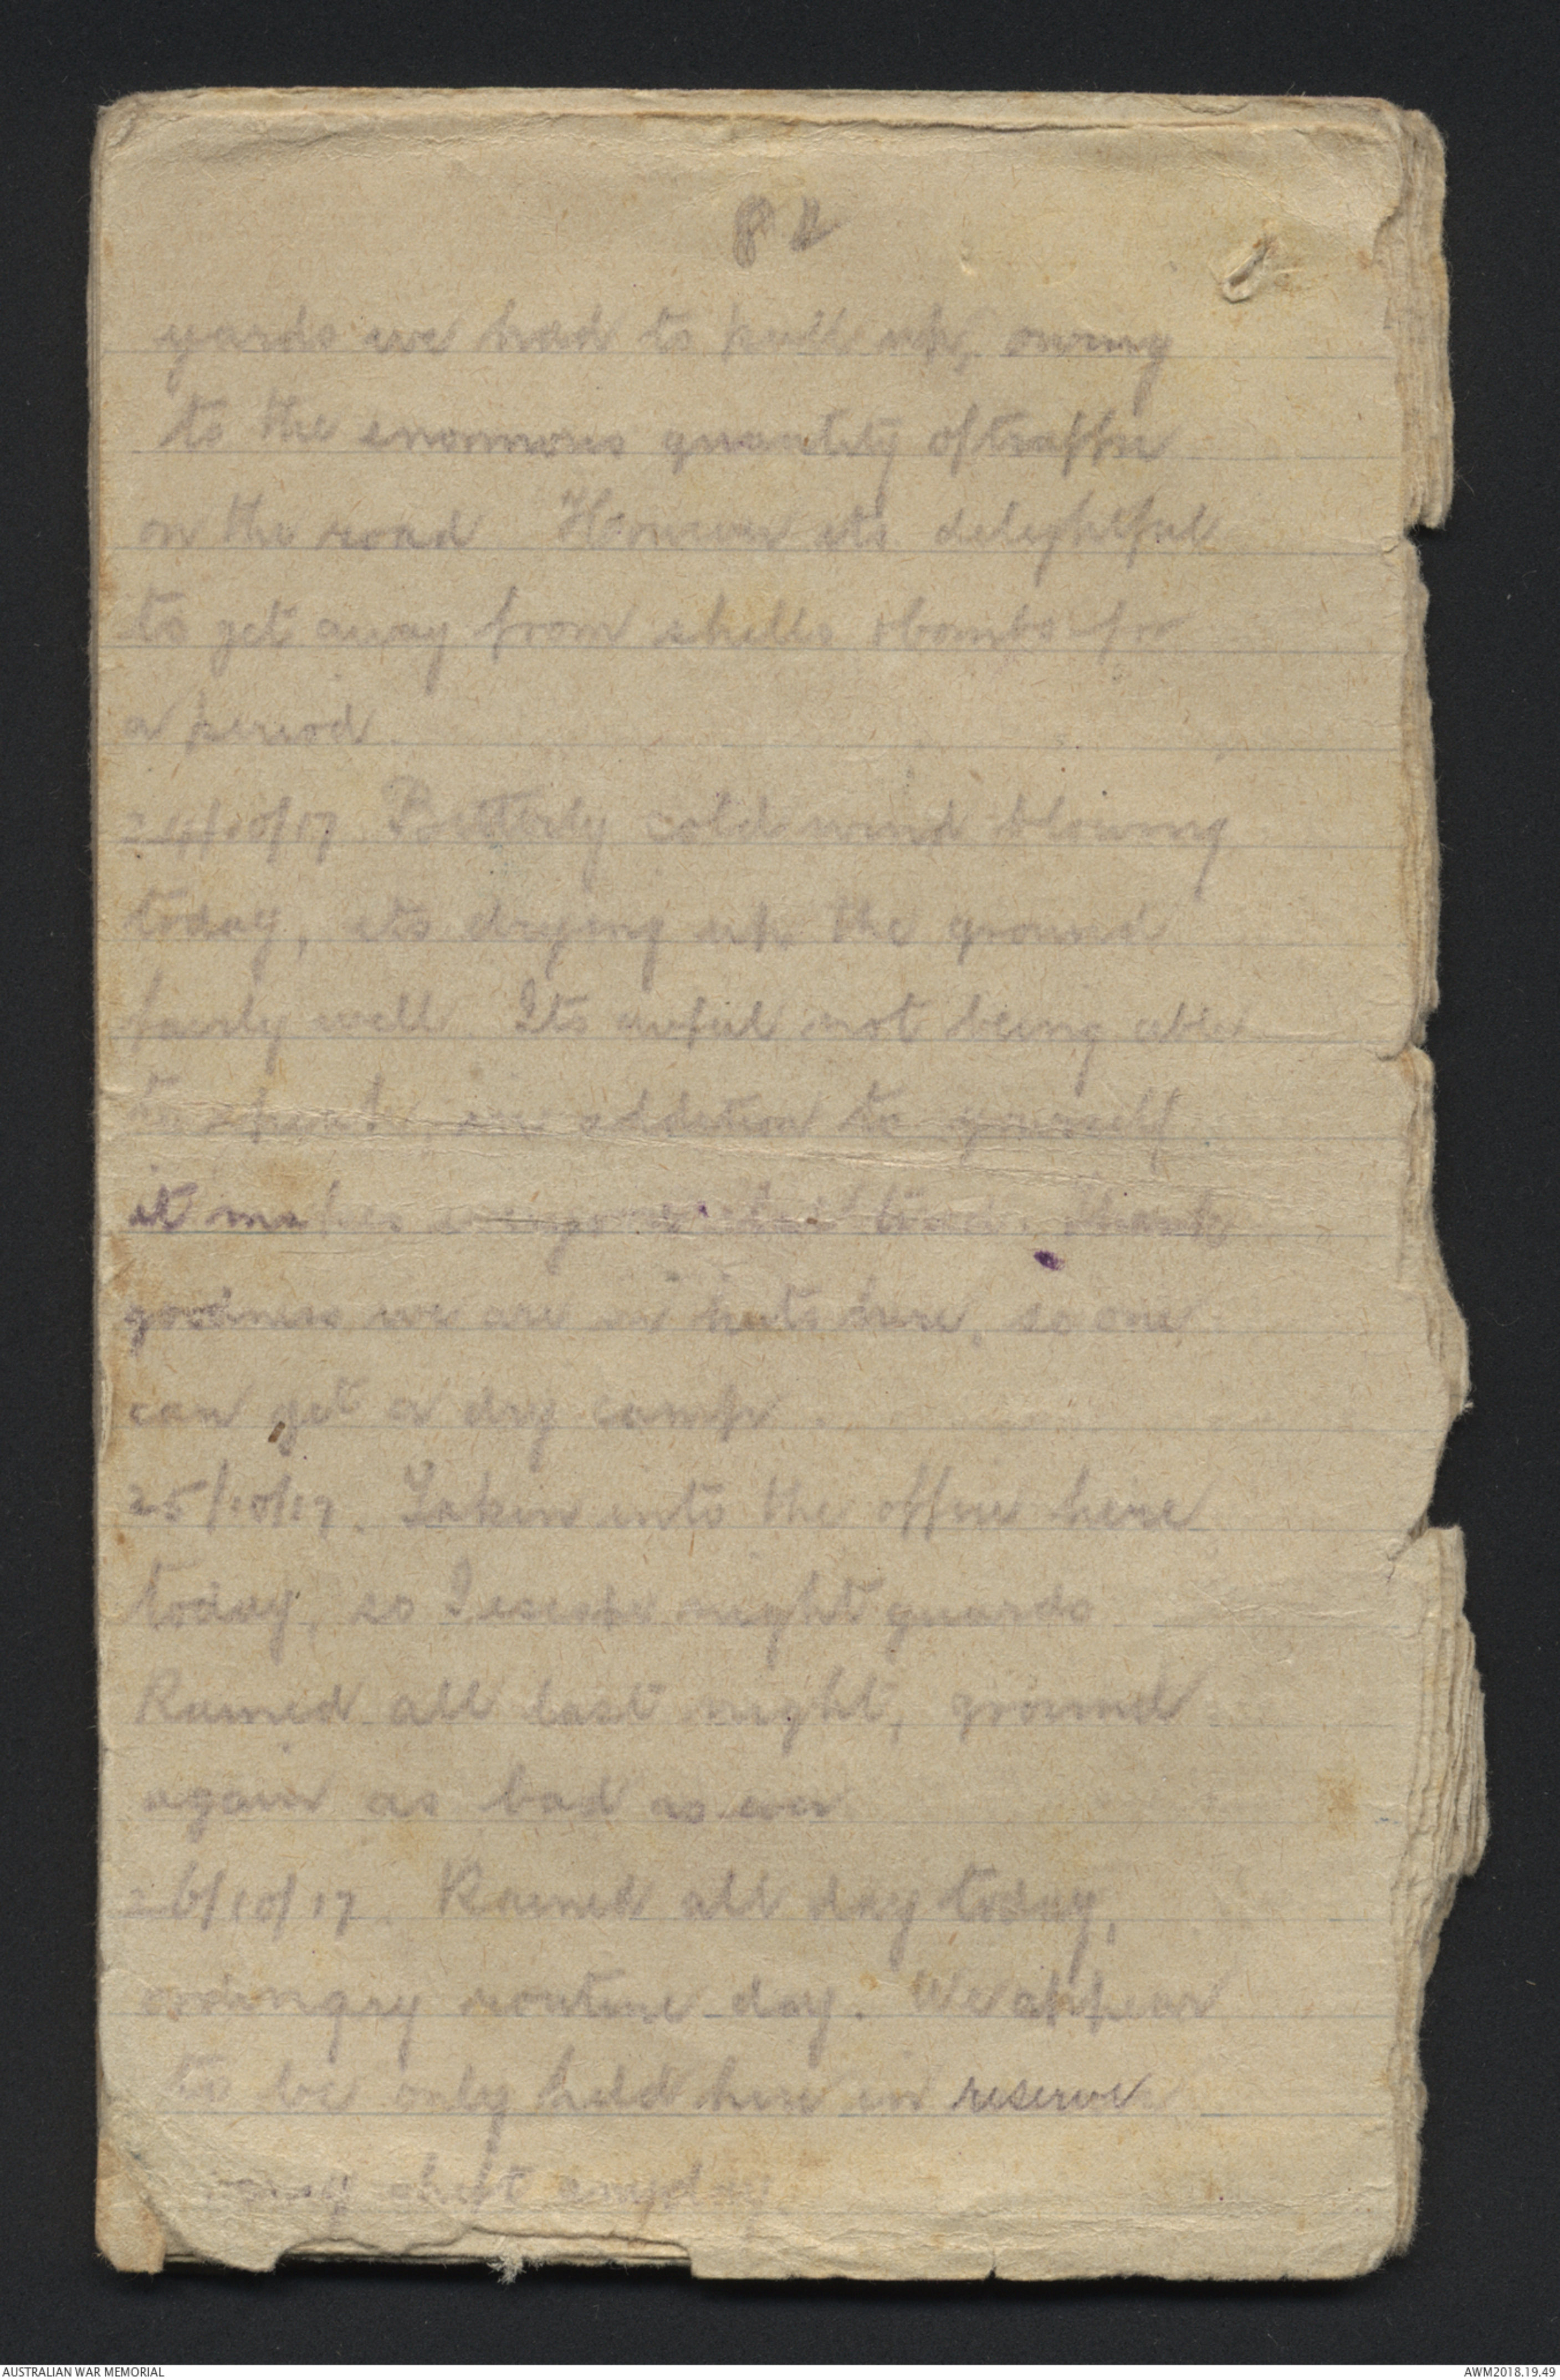 82
yards we had to pull up, owing
to the enormous quantity of traffic
on the road However its delightful
to get away from shells & bombs for
a period.
24/10/17 Bitterly cold wind blowing
today, its drying up the ground
fairly well. Its awful not being able
to speak, in addition to yourself
it makes
goodness we are in huts here, so one
can get a dry camp.
25/10/17. Taken into the office here
today, so I escape night guards
Rained all last night, ground
again as bad as ever
26/10/17. Rained all day today,
ordinary routine day. We appear
to be only held here in reserve
may shift anyday
AUSTRALIAN WAR MEMORIAL
AWM2018.19.49